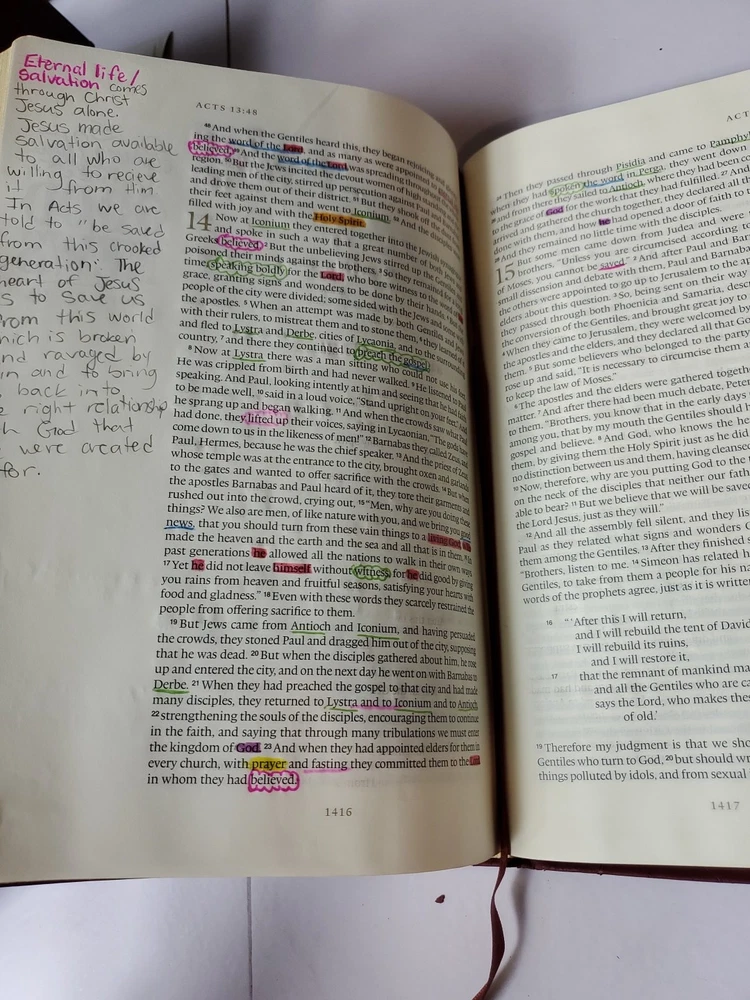 Eternal life/
Salvation comes
through Christ
Jesus alone.
Jesus made
salvation available
to all who are
willing to recieve
it from Him
In Acts we are
told to "be saved
from this crooked
generation. The
heart of Jesus
is to save us
from this world
which is broken
and ravaged by
sin and to bring
back into
right relationship
God that
were created
for.
ACTS 13:48
48 And when the Gentiles heard this, they began rejoicing and
ing the word of the Lord, and as many as were appointed
believed. 49 And the word of the Lord was spreading through
region. 50 But the Jews incited the devout women of high standing
leading men of the city, stirred up persecution against Paul and
and drove them out of their district. 51 But they shook off the
their feet against them and went to Iconium. 52 And the disciples
filled with joy and with the Holy Spirit.
14 Now at Iconium they entered together into the Jewish
and spoke in such a way that a great number of both Jews
Greeks believed. 2 But the unbelieving Jews stirred up the Gentiles
poisoned their minds against the brothers. 3 So they remained
time, speaking boldly for the Lord, who bore witness to the
grace, granting signs and wonders to be done by their hands.
people of the city were divided; some sided with the Jews and
the apostles. 5 When an attempt was made by both Gentiles and
with their rulers, to mistreat them and to stone them, 6 they learned
and fled to Lystra and Derbe, cities of Lycaonia, and to the surrounding
country, 7 and there they continued to preach the gospel.
8 Now at Lystra there was a man sitting who could not use his
He was crippled from birth and had never walked. 9 He listened to Paul
speaking. And Paul, looking intently at him and seeing that he had
to be made well, 10 said in a loud voice, "Stand upright on your feet." And
he sprang up and began walking. 11 And when the crowds saw what Paul
had done, they lifted up their voices, saying in Lycaonian, "The gods
come down to us in the likeness of men!" 12 Barnabas they called Zeus, and
Paul, Hermes, because he was the chief speaker. 13 And the priest of Zeus,
whose temple was at the entrance to the city, brought oxen and garlands
to the gates and wanted to offer sacrifice with the crowds. 14 But when
the apostles Barnabas and Paul heard of it, they tore their garments and
rushed out into the crowd, crying out, 15 "Men, why are you doing these
things? We also are men, of like nature with you, and we bring you good
news, that you should turn from these vain things to a living God, who
made the heaven and the earth and the sea and all that is in them. 16 In
past generations he allowed all the nations to walk in their own ways.
17 Yet he did not leave himself without witness, for he did good by giving
you rains from heaven and fruitful seasons, satisfying your hearts with
food and gladness." 18 Even with these words they scarcely restrained the
people from offering sacrifice to them.
19 But Jews came from Antioch and Iconium, and having persuaded
the crowds, they stoned Paul and dragged him out of the city, supposing
that he was dead. 20 But when the disciples gathered about him, he rose
up and entered the city, and on the next day he went on with Barnabas to
Derbe. 21 When they had preached the gospel to that city and had made
many disciples, they returned to Lystra and to Iconium and to Antioch,
22 strengthening the souls of the disciples, encouraging them to continue
in the faith, and saying that through many tribulations we must enter
the kingdom of God. 23 And when they had appointed elders for them in
every church, with prayer and fasting they committed them to the Lord
in whom they had believed.
1416
24 Then they passed through Pisidia and came to Pamphylia
when they had spoken the word in Perga, they went down
26 and from there they sailed to Antioch, where they had been
to the grace of God for the work that they had fulfilled. 27 And
arrived and gathered the church together, they declared all th
done with them, and how he had opened a door of faith to
28 And they remained no little time with the disciples.
15 But some men came down from Judea and were
brothers, "Unless you are circumcised according to
of Moses, you cannot be saved." 2 And after Paul and Bar
small dissension and debate with them, Paul and Barnaba
the others were appointed to go up to Jerusalem to the ap
elders about this question. 3 So, being sent on their way
they passed through both Phoenicia and Samaria, descr
the conversion of the Gentiles, and brought great joy to
4 When they came to Jerusalem, they were welcomed by
the apostles and the elders, and they declared all that Go
them. 5 But some believers who belonged to the party
rose up and said, "It is necessary to circumcise them ar
to keep the law of Moses."
6 The apostles and the elders were gathered togethe
matter. 7 And after there had been much debate, Peter
to them, "Brothers, you know that in the early days
among you, that by my mouth the Gentiles should h
gospel and believe. 8 And God, who knows the he
them, by giving them the Holy Spirit just as he did
no distinction between us and them, having cleansed
10 Now, therefore, why are you putting God to the t
on the neck of the disciples that neither our fathe
able to bear? 11 But we believe that we will be saved
the Lord Jesus, just as they will."
12 And all the assembly fell silent, and they lis
Paul as they related what signs and wonders G
them among the Gentiles. 13 After they finished s
"Brothers, listen to me. 14 Simeon has related h
Gentiles, to take from them a people for his na
words of the prophets agree, just as it is written
16 "'After this I will return,
and I will rebuild the tent of David
I will rebuild its ruins,
and I will restore it,
17 that the remnant of mankind ma
and all the Gentiles who are ca
says the Lord, who makes thes
of old.'
19 Therefore my judgment is that we sho
Gentiles who turn to God, 20 but should wr
things polluted by idols, and from sexual
1417